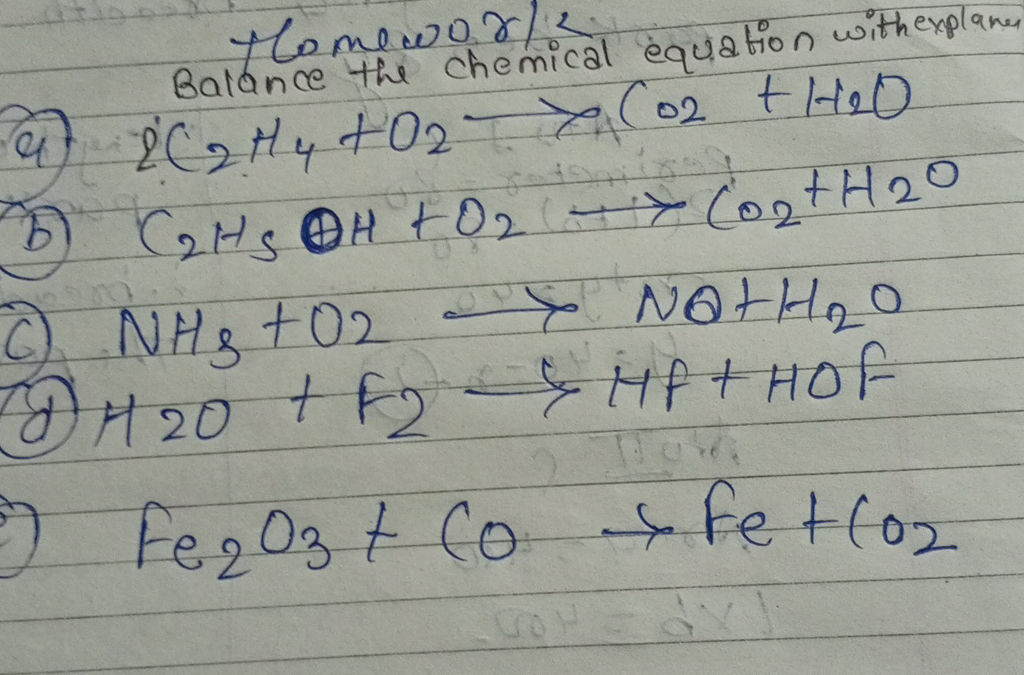 Homework
Balance the chemical equation with explane
a) C2H4 + O2 → CO2 + H2O
b) C2H5OH + O2 → CO2 + H2O
c) NH3 + O2 → NO + H2O
d) H2O + F2 → HF + HOF
Fe2O3 + CO → Fe + CO2